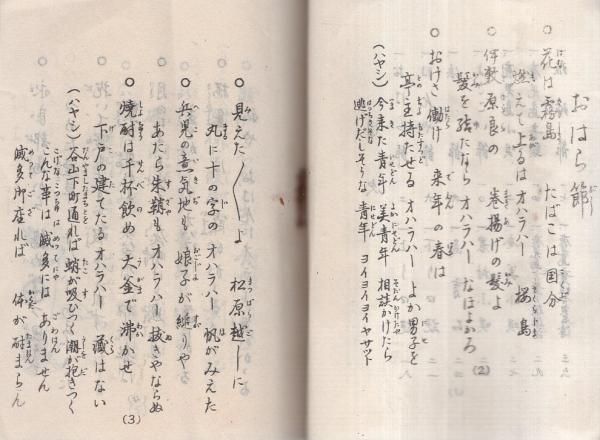 おはら節
○ 花は霧島 たばこは国分
燃えて上るは オハラハー 桜島
○ 伊敷原良の 巻揚げの髪よ
髪を結たなら オハラハー なほよかろ
(2)
○ おけさ働け 来年の春は
亭主持たせる オハラハー よか男子を
(ハヤシ) 今来た青年 美青年 相談かけたら
逃げだしそうな 青年 ヨイヨイヨイヤサット
○ 見えた〳〵よ 松原越しに
丸に十の字の オハラハー 帆がみえた
○ 兵児の意気地も 娘子が縋りや
あたら朱鞘も オハラハー 抜きやならぬ
○ 焼酎は千杯飲め 大金で沸かせ
(3)
下戸の建てたる オハラハー 蔵はない
(ハヤシ) 谷山下町通れば 蛸が吸ひつく 潮が抱きつく
こんな事は 滅多には ありません
滅多所座れば 体が耐まらん